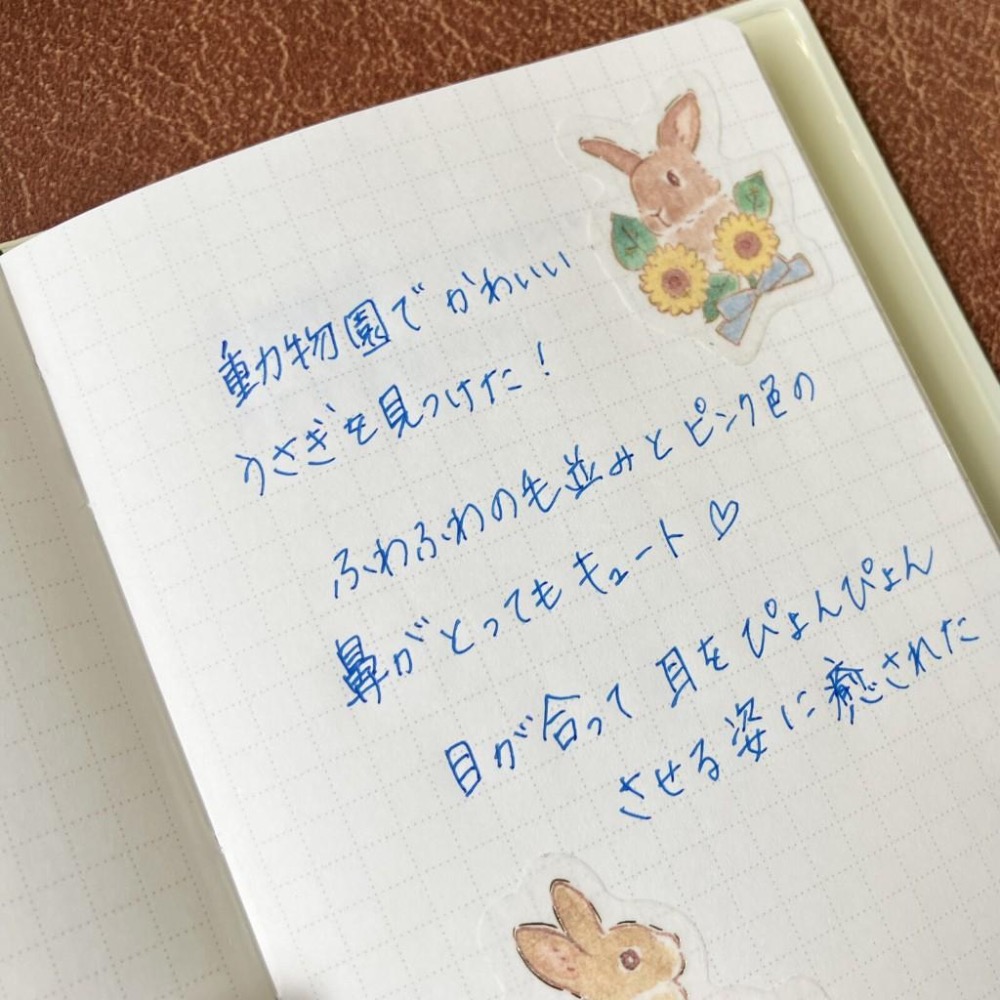 動物園でかわいい
うさぎを見つけた!
ふわふわの毛並みとピンク色の
鼻がとってもキュート♡
目が合って耳をぴょんぴょん
させる姿に癒された